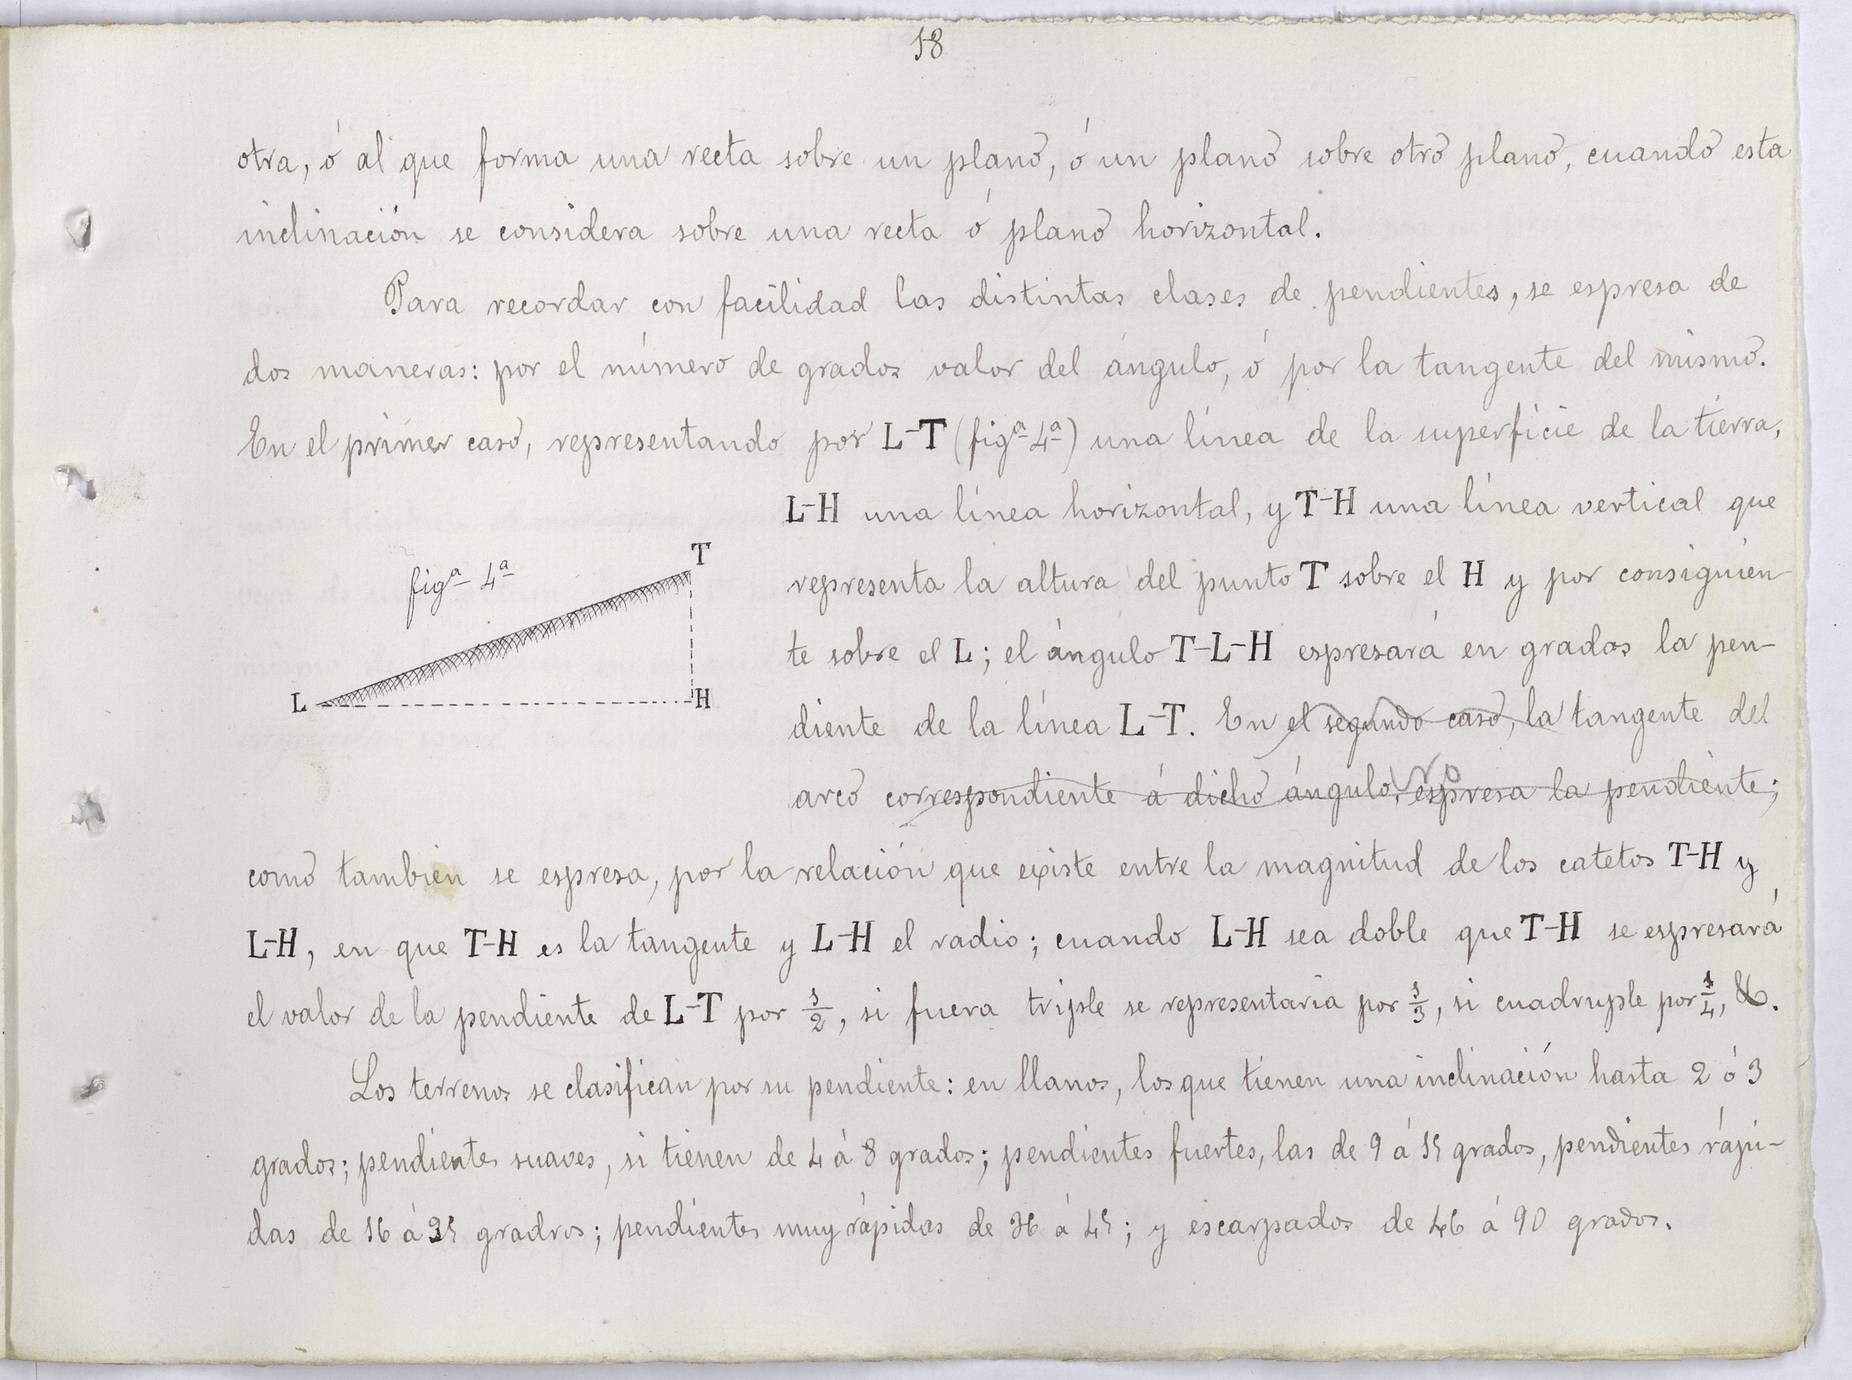 18
otra, ó al que forma una recta sobre un plano, ó un plano sobre otro plano, cuando esta
inclinación se considera sobre una recta ó plano horizontal.
Para recordar con facilidad las distintas clases de pendientes, se espresa de
dos maneras: por el número de grados valor del ángulo, ó por la tangente del mismo.
En el primer caso, representando por L-T (figª 4ª) una línea de la superficie de la tierra,
L-H una línea horizontal, y T-H una línea vertical que
representa la altura del punto T sobre el H y por consiguien-
te sobre el L; el ángulo T-L-H espresará en grados la pen-
diente de la línea L-T. En el segundo caso, la tangente del
arco correspondiente á dicho ángulo, espresa la pendiente;
figª 4ª
T
L
H
como también se espresa, por la relación que existe entre la magnitud de los catetos T-H y
L-H, en que T-H es la tangente y L-H el radio; cuando L-H sea doble que T-H se espresará
el valor de la pendiente de L-T por 1/2, si fuera triple se representaria por 1/3, si cuadruple por 1/4, &.
Los terrenos se clasifican por su pendiente: en llanos, los que tienen una inclinación hasta 2 ó 3
grados; pendientes suaves, si tienen de 4 á 8 grados; pendientes fuertes, las de 9 á 15 grados, pendientes rápi-
das de 16 á 35 gradros; pendientes muy rápidas de 36 á 45; y escarpados de 46 á 90 grados.